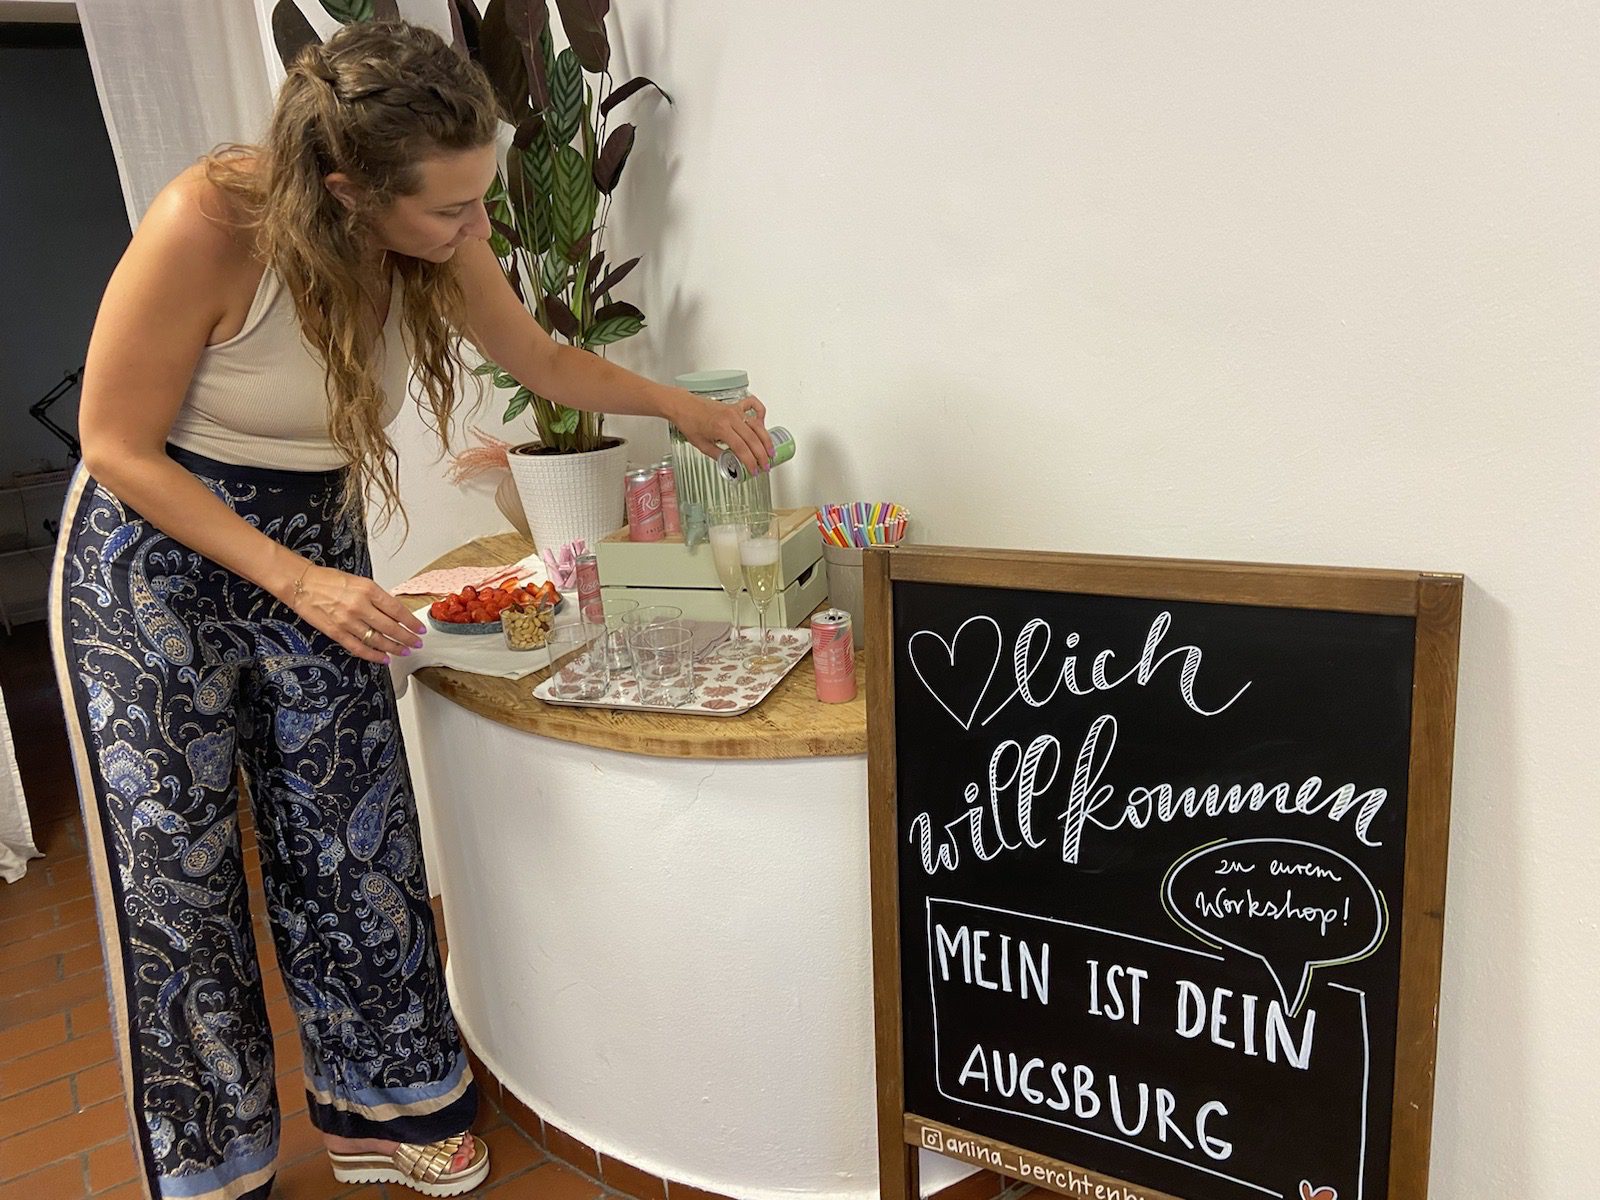 lich
willkommen
zu eurem
Workshop!
MEIN IST DEIN
AUGSBURG